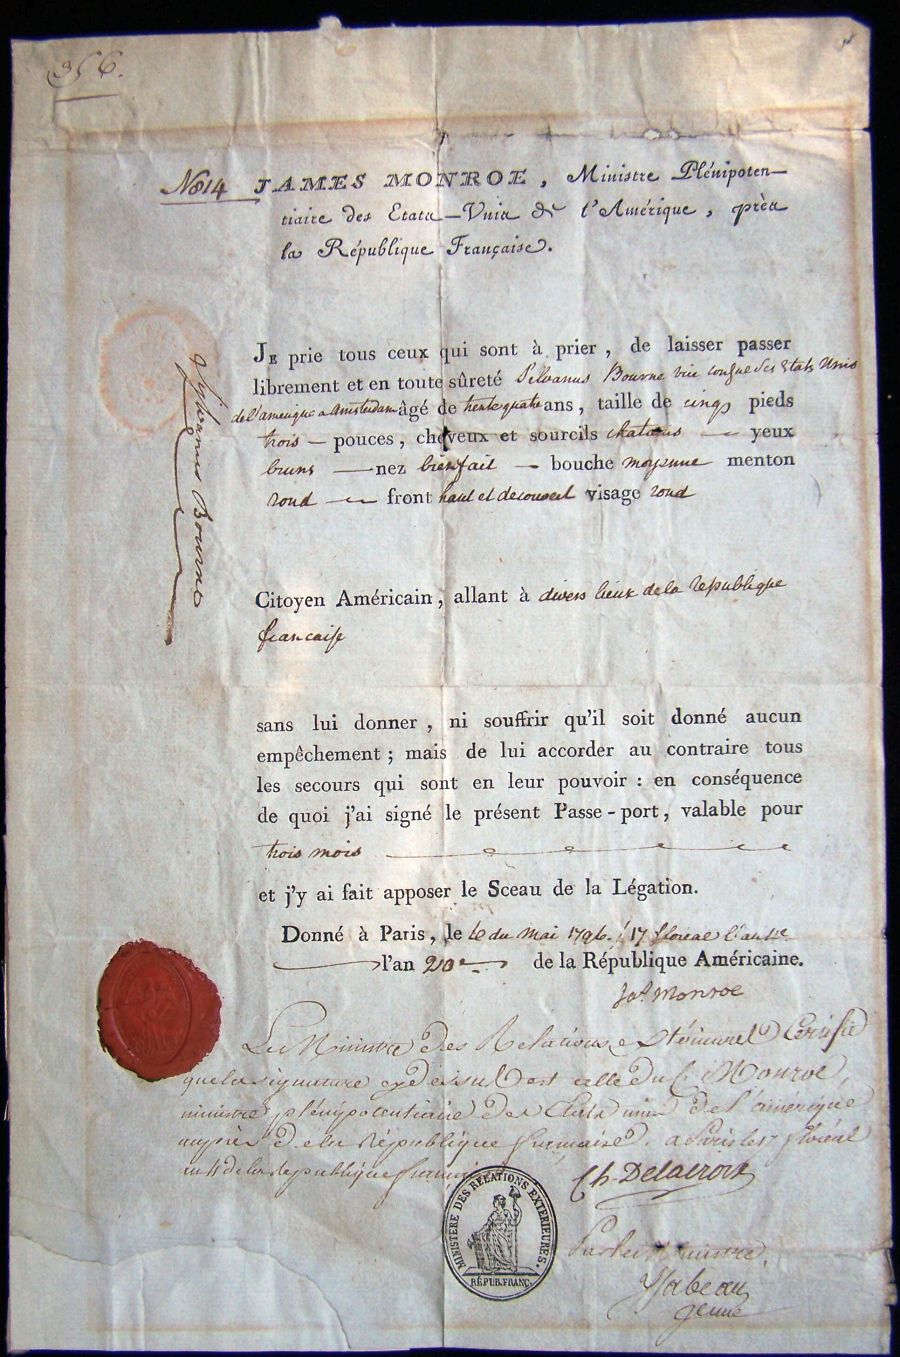 356.
No 14 JAMES MONROE, Ministre Plénipoten-
tiaire des Etats-Unis de l'Amérique, près
la République Française.
JE prie tous ceux qui sont à prier, de laisser passer
librement et en toute sûreté Silvanus Bourne vice consul des Etats Unis
de l'amerique a Amsterdam âgé de trente quatre ans, taille de cinq pieds
trois — pouces, cheveux et sourcils chatains — yeux
bruns — nez bien fait — bouche moyenne menton
rond — front haut et decouvert visage rond
Sylvanus Bourne
Citoyen Américain, allant à divers lieux de la republique
francaise
sans lui donner, ni souffrir qu'il soit donné aucun
empêchement; mais de lui accorder au contraire tous
les secours qui sont en leur pouvoir : en conséquence
de quoi j'ai signé le présent Passe-port, valable pour
trois mois
et j'y ai fait apposer le Sceau de la Légation.
Donné à Paris, le 6 du Mai 1796. 17 floreal l'an
l'an 20e de la République Américaine.
Jas Monroe
Le Ministre des Relations Exterieures Certifie
que la signature cydessus est celle du C. Monroe,
ministre plénipotentiaire des Etats unis de l'amerique
auprès de la république francaise. a Paris le 17 floréal
an 4 de la republique francaise
Ch. Delacroix
MINISTERE DES RELATIONS EXTERIEURES.
RÉPUB. FRANC.
Par le Ministre,